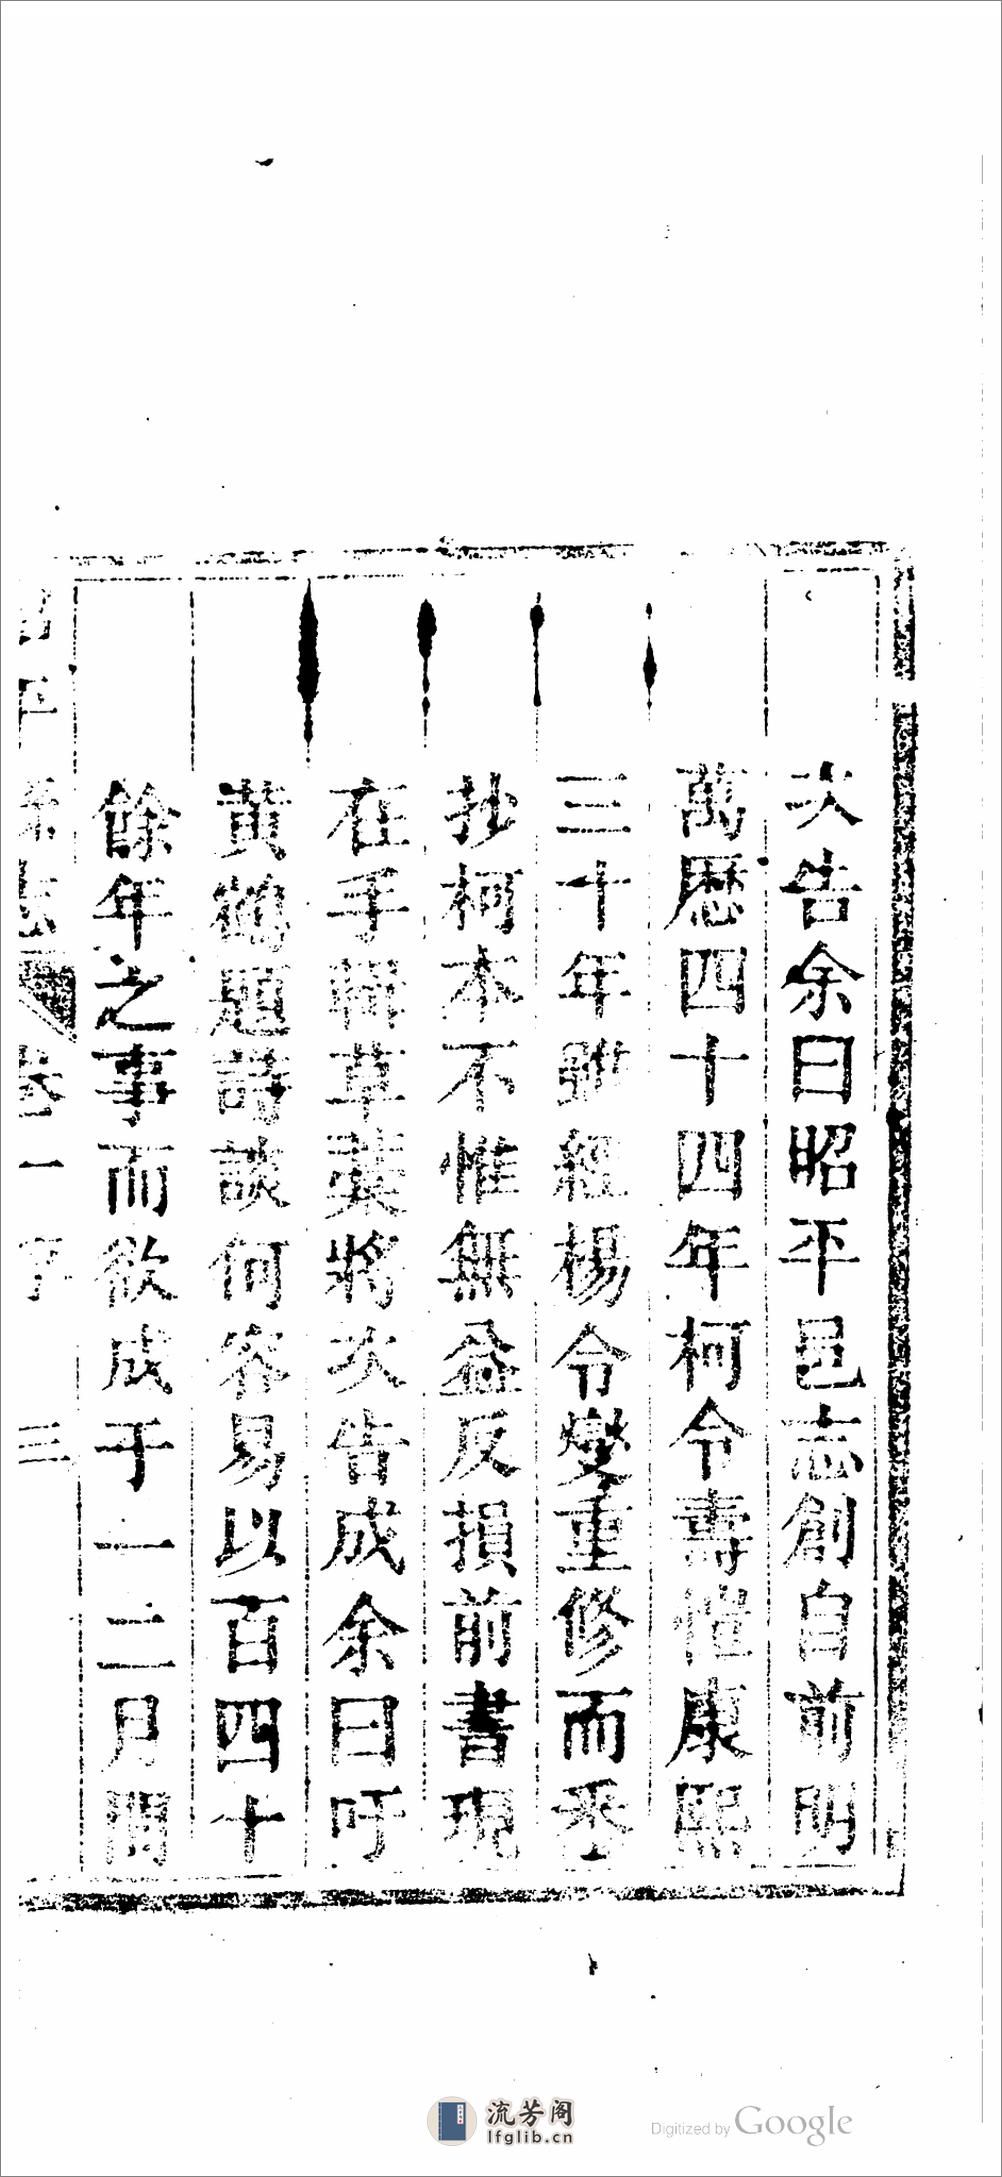 大告余曰昭平邑志創自前明
萬歷四十四年柯令壽愷康熙
三十年雖經楊令燮重修而悉
抄柯本不惟無益反損前書現
在手闢草萊將次告成余曰吁
黃鶴題詩談何容易以百四十
餘年之事而欲成于一二月間
昭平縣志 卷一 序 三
流芳阁
lfglib.cn
Digitized by Google